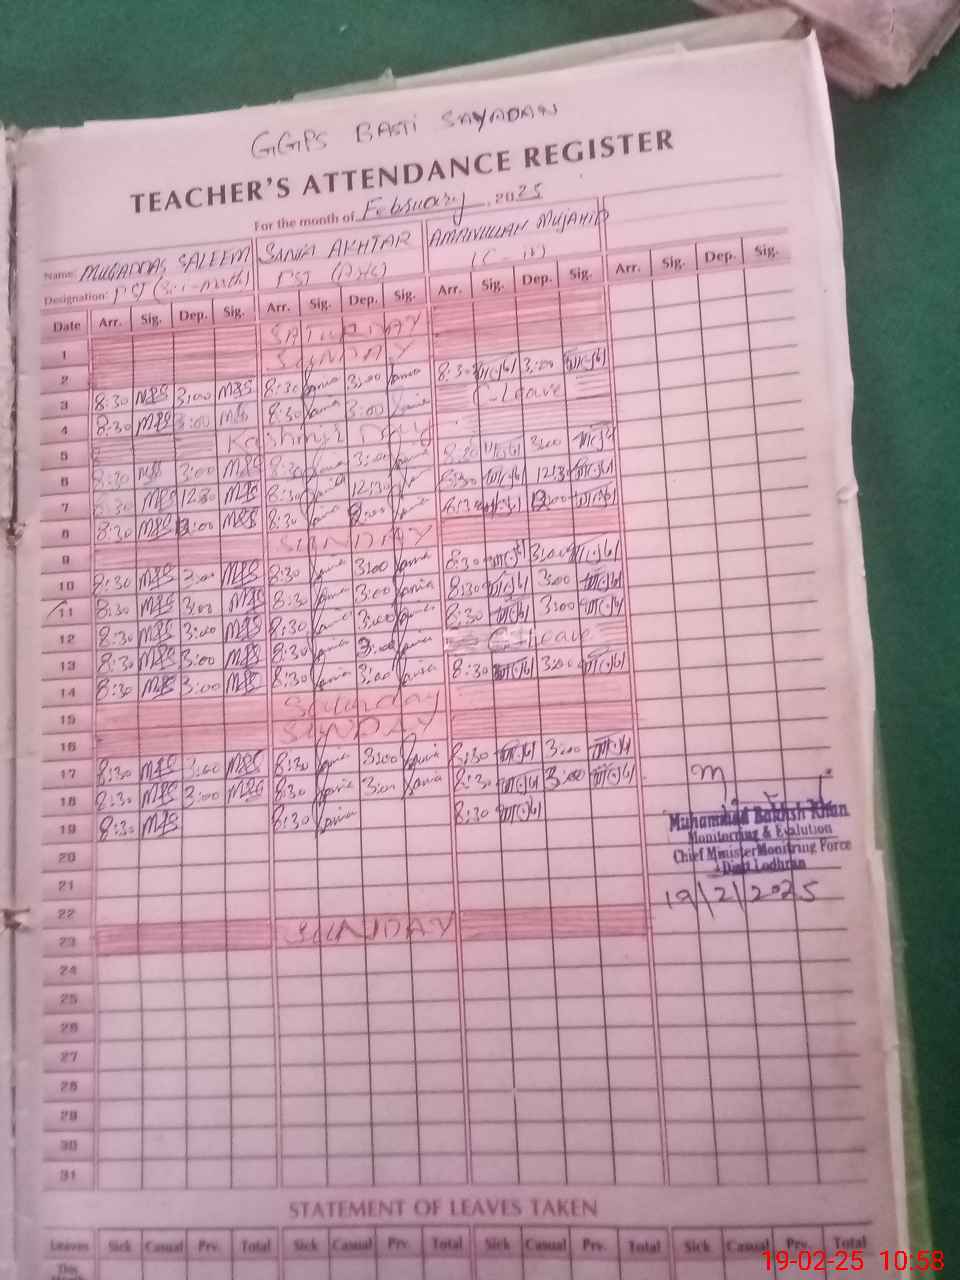 GGPS BASTI SAYADAN
TEACHER'S ATTENDANCE REGISTER
For the month of February, 2025
Name: MUQADDAS SALEEM SANIA AKHTAR AMANULLAH MUJAHID
Designation: PST (Sci-math) PST (Arts) (C-IV)
Date Arr. Sig. Dep. Sig. Arr. Sig. Dep. Sig. Arr. Sig. Dep. Sig. Arr. Sig. Dep. Sig.
1 SATURDAY
2 SUNDAY
3 8:30 MPS 3:00 MPS 8:30 Sania 3:00 Sania 8:30 3:00
4 8:30 MPS 3:00 MPS 8:30 Sania 3:00 Sania C-Leave
5 Kashmir Day
6 8:30 MPS 3:00 MPS 8:30 Sania 3:00 8:30 3:00
7 8:30 MPS 12:30 MPS 8:30 Sania 12:30 8:30 12:30
8 8:30 MPS 2:00 MPS 8:30 Sania 2:00 Sania 8:30 2:00
9 SUNDAY
10 8:30 MPS 3:00 MPS 8:30 Sania 3:00 Sania 8:30 3:00
11 8:30 MPS 3:00 MPS 8:30 Sania 3:00 Sania 8:30 3:00
12 8:30 MPS 3:00 MPS 8:30 Sania 3:00 Sania 8:30 3:00
13 8:30 MPS 3:00 MPS 8:30 Sania 3:00 Sania C-Leave
14 8:30 MPS 3:00 MPS 8:30 Sania 3:00 Sania 8:30 3:00
15 Saturday
16 SUNDAY
17 8:30 MPS 3:00 MPS 8:30 Sania 3:00 Sania 8:30 3:00
18 8:30 MPS 3:00 MPS 8:30 Sania 3:00 Sania 8:30 3:00
19 8:30 MPS 8:30 Sania 8:30
Muhammad Bakhsh Khan
Monitoring & Evalution
Chief Minister Monitring Force
Distt Lodhran
19/2/2025
20
21
22
23 SUNDAY
24
25
26
27
28
29
30
31
STATEMENT OF LEAVES TAKEN
Leaves Sick Casual Prv. Total Sick Casual Prv. Total Sick Casual Prv. Total Sick Casual Prv. Total
This
19-02-25 10:58